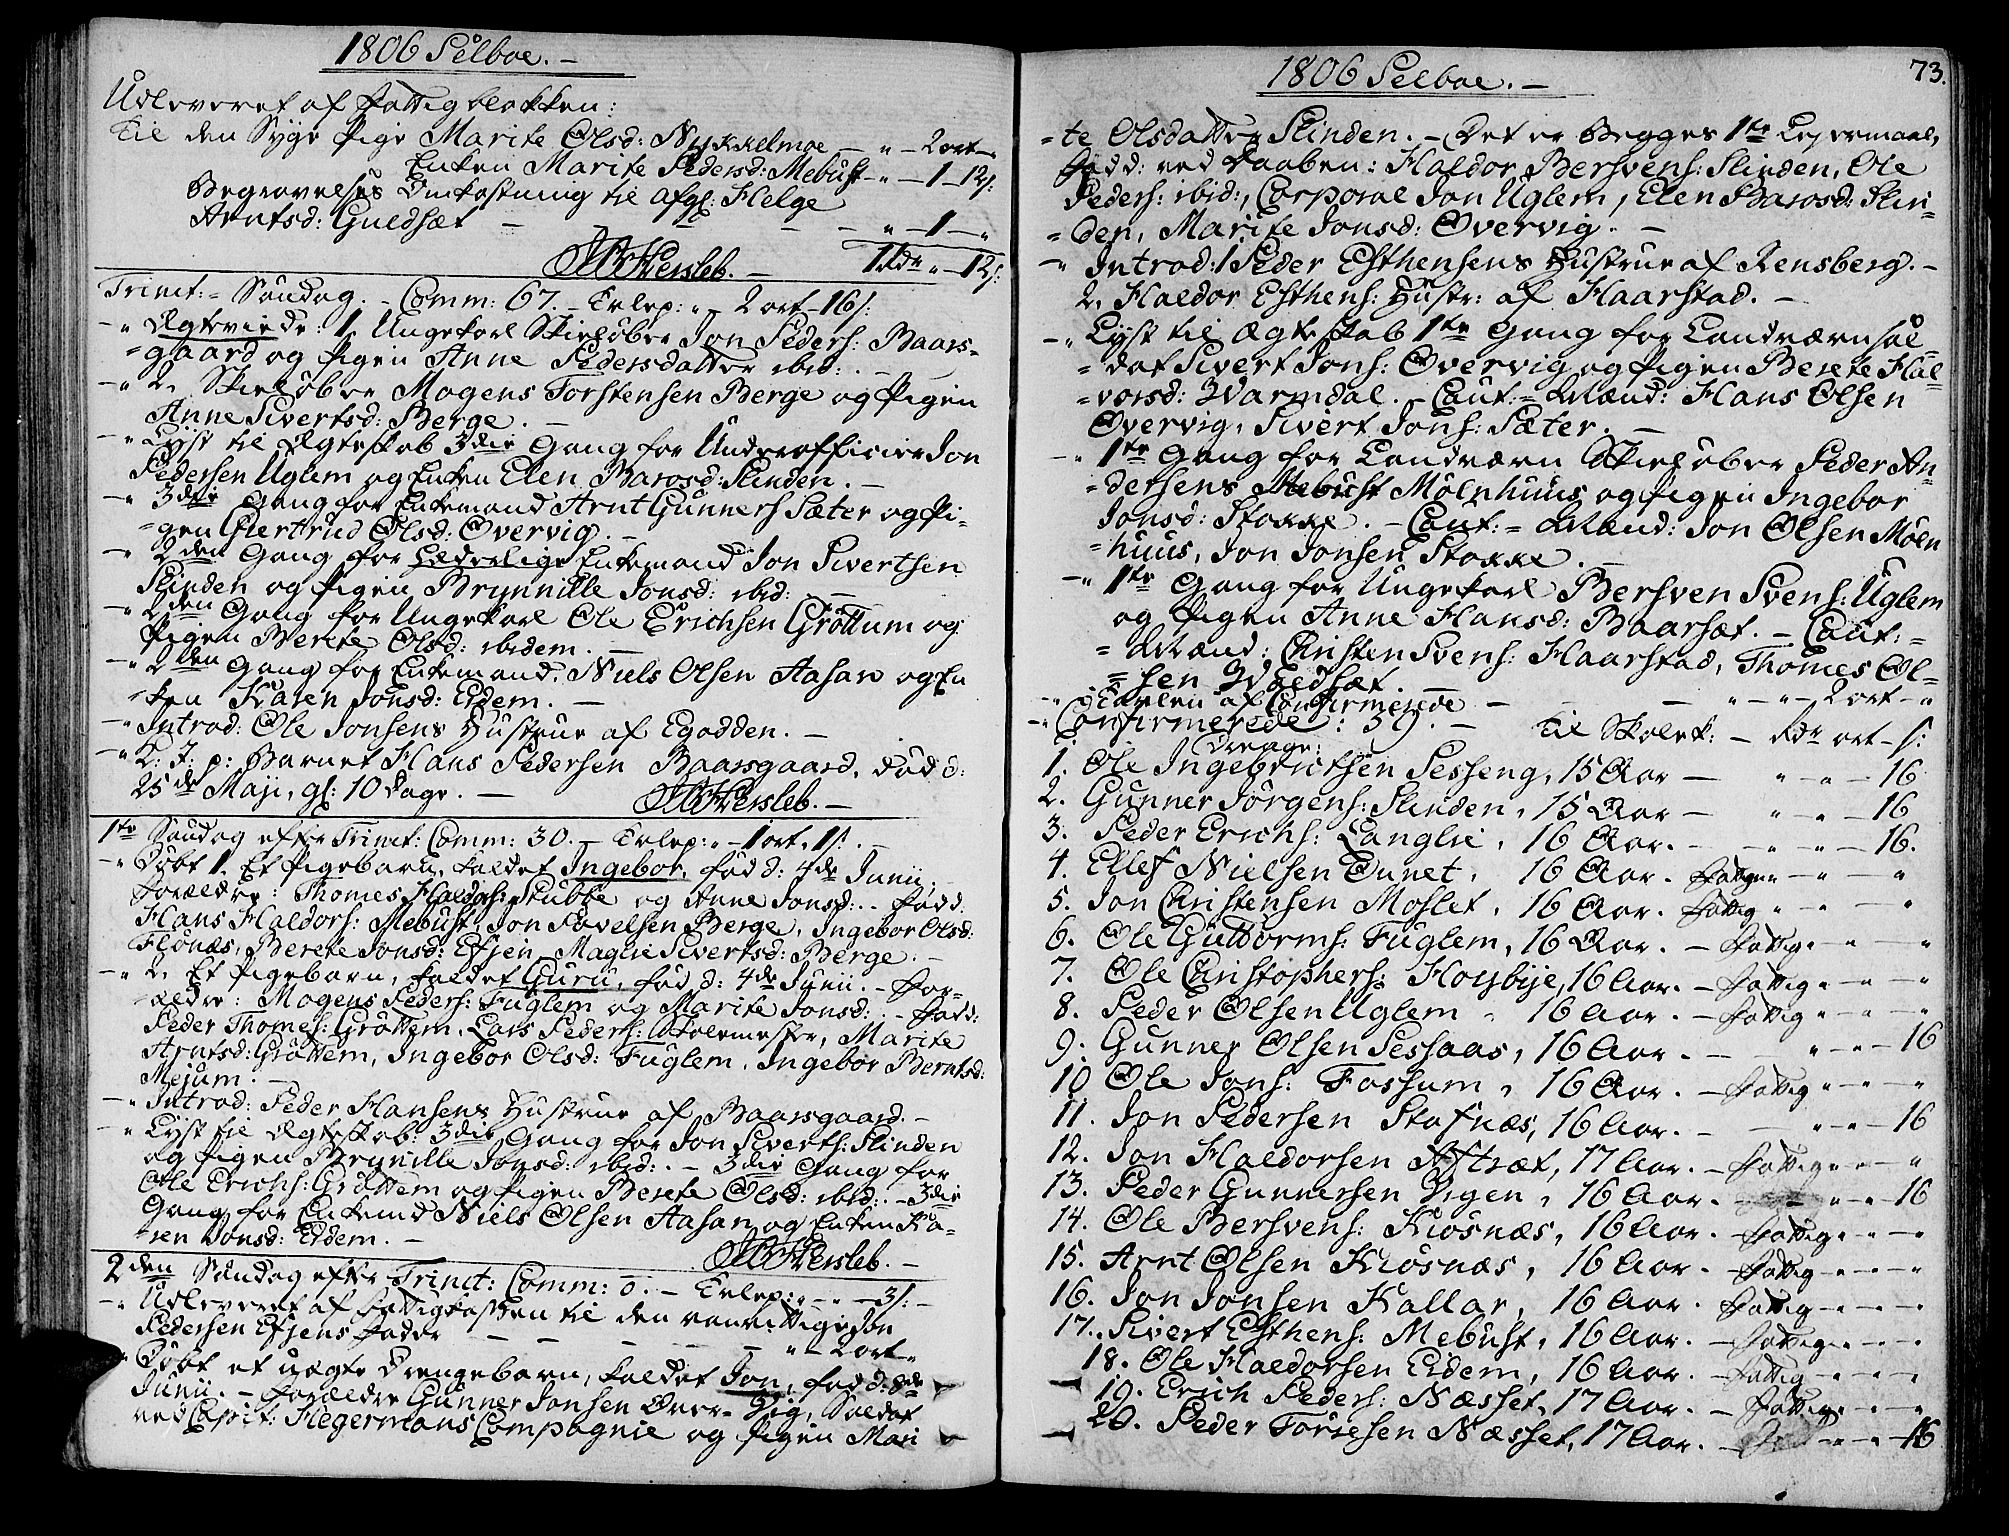 1806 Selboe. –
Udleveret af Fattigblokken:
til den Syge Pige Marite Olsd: Nykkelmoe – „ – 2 ort – „
Enken Marite Pedersd: Mebust – „ – 1 – 12 s:
Begravelses Omkostning til afg: Helge
Arntsd: Guldsæt – – – – „ – 1 – „
Hersleb. – 1 Rdr „ – 12 s:
Trinit: Søndag. – Comm: 67. – Tvlep: „ 2 ort – 16 s:
– „ Ægteviede: 1. Ungekarl Skieløber Jon Peders: Baars-
-gaard og Pigen Anne Pedersdatter ibid: . –
– „ 2. Skieløber Mogens Torstensen Berge og Pigen
Anne Sivertsd: Berge. –
– „ Lyst til Ægteskab 3die Gang for Underofficier Jon
Pedersen Uglem og Enken Elen Barosd: Slinden. –
– „ 3die Gang for Enkemand Arnt Gunners Sæter og Pi-
-gen Giertrud Olsd: Overvig. –
– „ 2den Gang for Enkemand Jon Sivertsen
Slinden og Pigen Brynnille Jonsd: ibid: –
– „ 2den Gang for Ungekarl Ole Erichsen Grøttum og
Pigen Berete Olsd: ibidem. –
– „ 2den Gang for Enkemand Niels Olsen Aasan og En
-ken Karen Jonsd: Eidem. –
– „ Introd: Ole Jonsens Hustrue af Egodden. –
– „ L: J: p: Barnet Hans Pedersen Baarsgaard, død d:
25de Maji, gl: 10 Dage. – Hersleb. –
1te Søndag efter Trinit: Comm: 30. – Tvlep: „ – 1 ort, 1 s: . –
– „ Døbt 1. Et Pigebarn, kaldet Ingebor, fød d: 4de Junii,
Forældre: Thomes Haldors: Stubbe og Anne Jonsd: . – Fadd:
Hans Haldors: Mebust, Jon Povelsen Berge, Ingebor Olsd:
Flønæs, Berete Jonsd: Evjen, Magli Sivertsd: Berge. –
– „ 2. Et Pigebarn, kaldet Guru, fød d: 4de Junii. – For-
-ældre: Mogens Peders: Fuglem og Marite Jonsd: . – Fadd:
Peder Thomes: Grøttem, Lars Peders: Skolemester, Marite
Arntsd: Grøttem, Ingebor Olsd: Fuglem, Ingebor Berntsd:
Mejum. –
– „ Introd: Peder Hansens Hustrue af Baarsgaard. –
– „ Lyst til Ægteskab: 3die Gang for Jon Siverts: Slinden
og Pigen Brynille Jonsd: ibid: . – 3die Gang for
Ole Erichs: Grøttem og Pigen Berete Olsd: ibid: . – 3die
Gang for Enkemd Niels Olsen Aasan og Enken Ka-
-ren Jonsd: Eidem. –
Hersleb. –
2den Søndag efter Trinit: Comm: 0. – Tvlep: „ – „ – 3 s: –
– „ Udleveret af Fattigkassen til den vanvittige Jon
Pedersen Evjens Fader – – – – – „ – 2 ort – „
– „ Døbt et uægte Drengebarn, kaldet Jon, fød d: 8de
Junii. – Forældre Gunner Jonsen Over-Vig, Soldat
ved Capit: Hegermans Compagnie og Pigen Mari
1806 Selboe. –
73.
-te Olsdatter Slinden. – Det er Begges 1te Lejermaal,
Fadd: ved Daaben: Haldor Bersvens: Slinden, Ole
Peders: ibid:, Corporal Jon Uglem, Elen Barosd: Slin-
-den, Marite Jonsd: Overvig. –
– „ Introd: 1. Peder Esthensens Hustrue af Rensberg. –
2. Haldor Esthens: Hustr: af Haarstad. –
– „ Lyst til Ægteskab 1te Gang for Landværnsol-
-dat Sivert Jons: Overvig og Pigen Berete Hal-
-vorsd: Warmdal. – Caut: = Mænd: Hans Olsen
Overvig, Sivert Jons: Sæter. –
– „ 1te Gang for Landværn Skieløber Peder An-
-dersens Mebust Mølnhuus og Pigen Ingebor
Jonsd: Stokke. – Caut: = Mænd: Jon Olsen Møln
-huus, Jon Jonsen Stokke. –
– „ 1te Gang for Ungekarl Bersven Svens: Uglem
og Pigen Anne Hansd: Baarset. – Caut: =
= Mænd: Christen Svens: Haarstad, Thomes Ol-
-sen Wældsæt.
– „ Tavlen af Confirmerede – – „ – „ – 2 ort – „
– „ Confirmerede: 39. – Til Skolek: – Rdr ort – s:
Drenge:
1. Ole Ingebrichtsen Sesseng, 15 Aar – „ – „ – 16
2. Gunner Jørgens: Slinden, 15 Aar – „ – „ – 16
3. Peder Erichs: Langlie, 16 Aar. – „ – „ – 16.
4. Ellef Nielsen Dunet, 16 Aar. Fattig „ – „ – „
5. Jon Christensen Moslet, 16 Aar. Fattig „ – „ – „
6. Ole Guttorms: Fuglem, 16 Aar. – Fattig „ – „ – „
7. Ole Christophers: Hoybye, 16 Aar. – Fattig „ – „ – „
8. Peder Olsen Uglem, 16 Aar. – Fattig „ – „ – „
9. Gunner Olsen Sessaas, 16 Aar. – – „ – „ – 16
10 Ole Jons: Fossum, 16 Aar. – Fattig „ – „ – „
11. Jon Pedersen Stafnæs, 16 Aar. – – „ – „ – 16
12. Jon Haldorsen Aftræt, 17 Aar. – Fattig „ – „ – „
13. Peder Gunnersen Vigen, 16 Aar. – „ – „ – 16
14. Ole Bersvens: Kiøsnæs, 16 Aar. – Fattig „ – „ – „
15. Arnt Olsen Kiøsnæs, 16 Aar. – Fattig – „ – „ – „
16. Jon Jonsen Kallar, 16 Aar. – Fattig – „ – „ – „
17. Sivert Esthens: Mebust, 16 Aar. – Fattig „ – „ – „
18. Ole Haldorsen Eidem, 16 Aar. – Fattig – „ – „ – „
19. Erich Peders: Næsset, 17 Aar. – Fattig „ – „ – „
20. Peder Toresen Næsset, 17 Aar. – „ – „ – 16